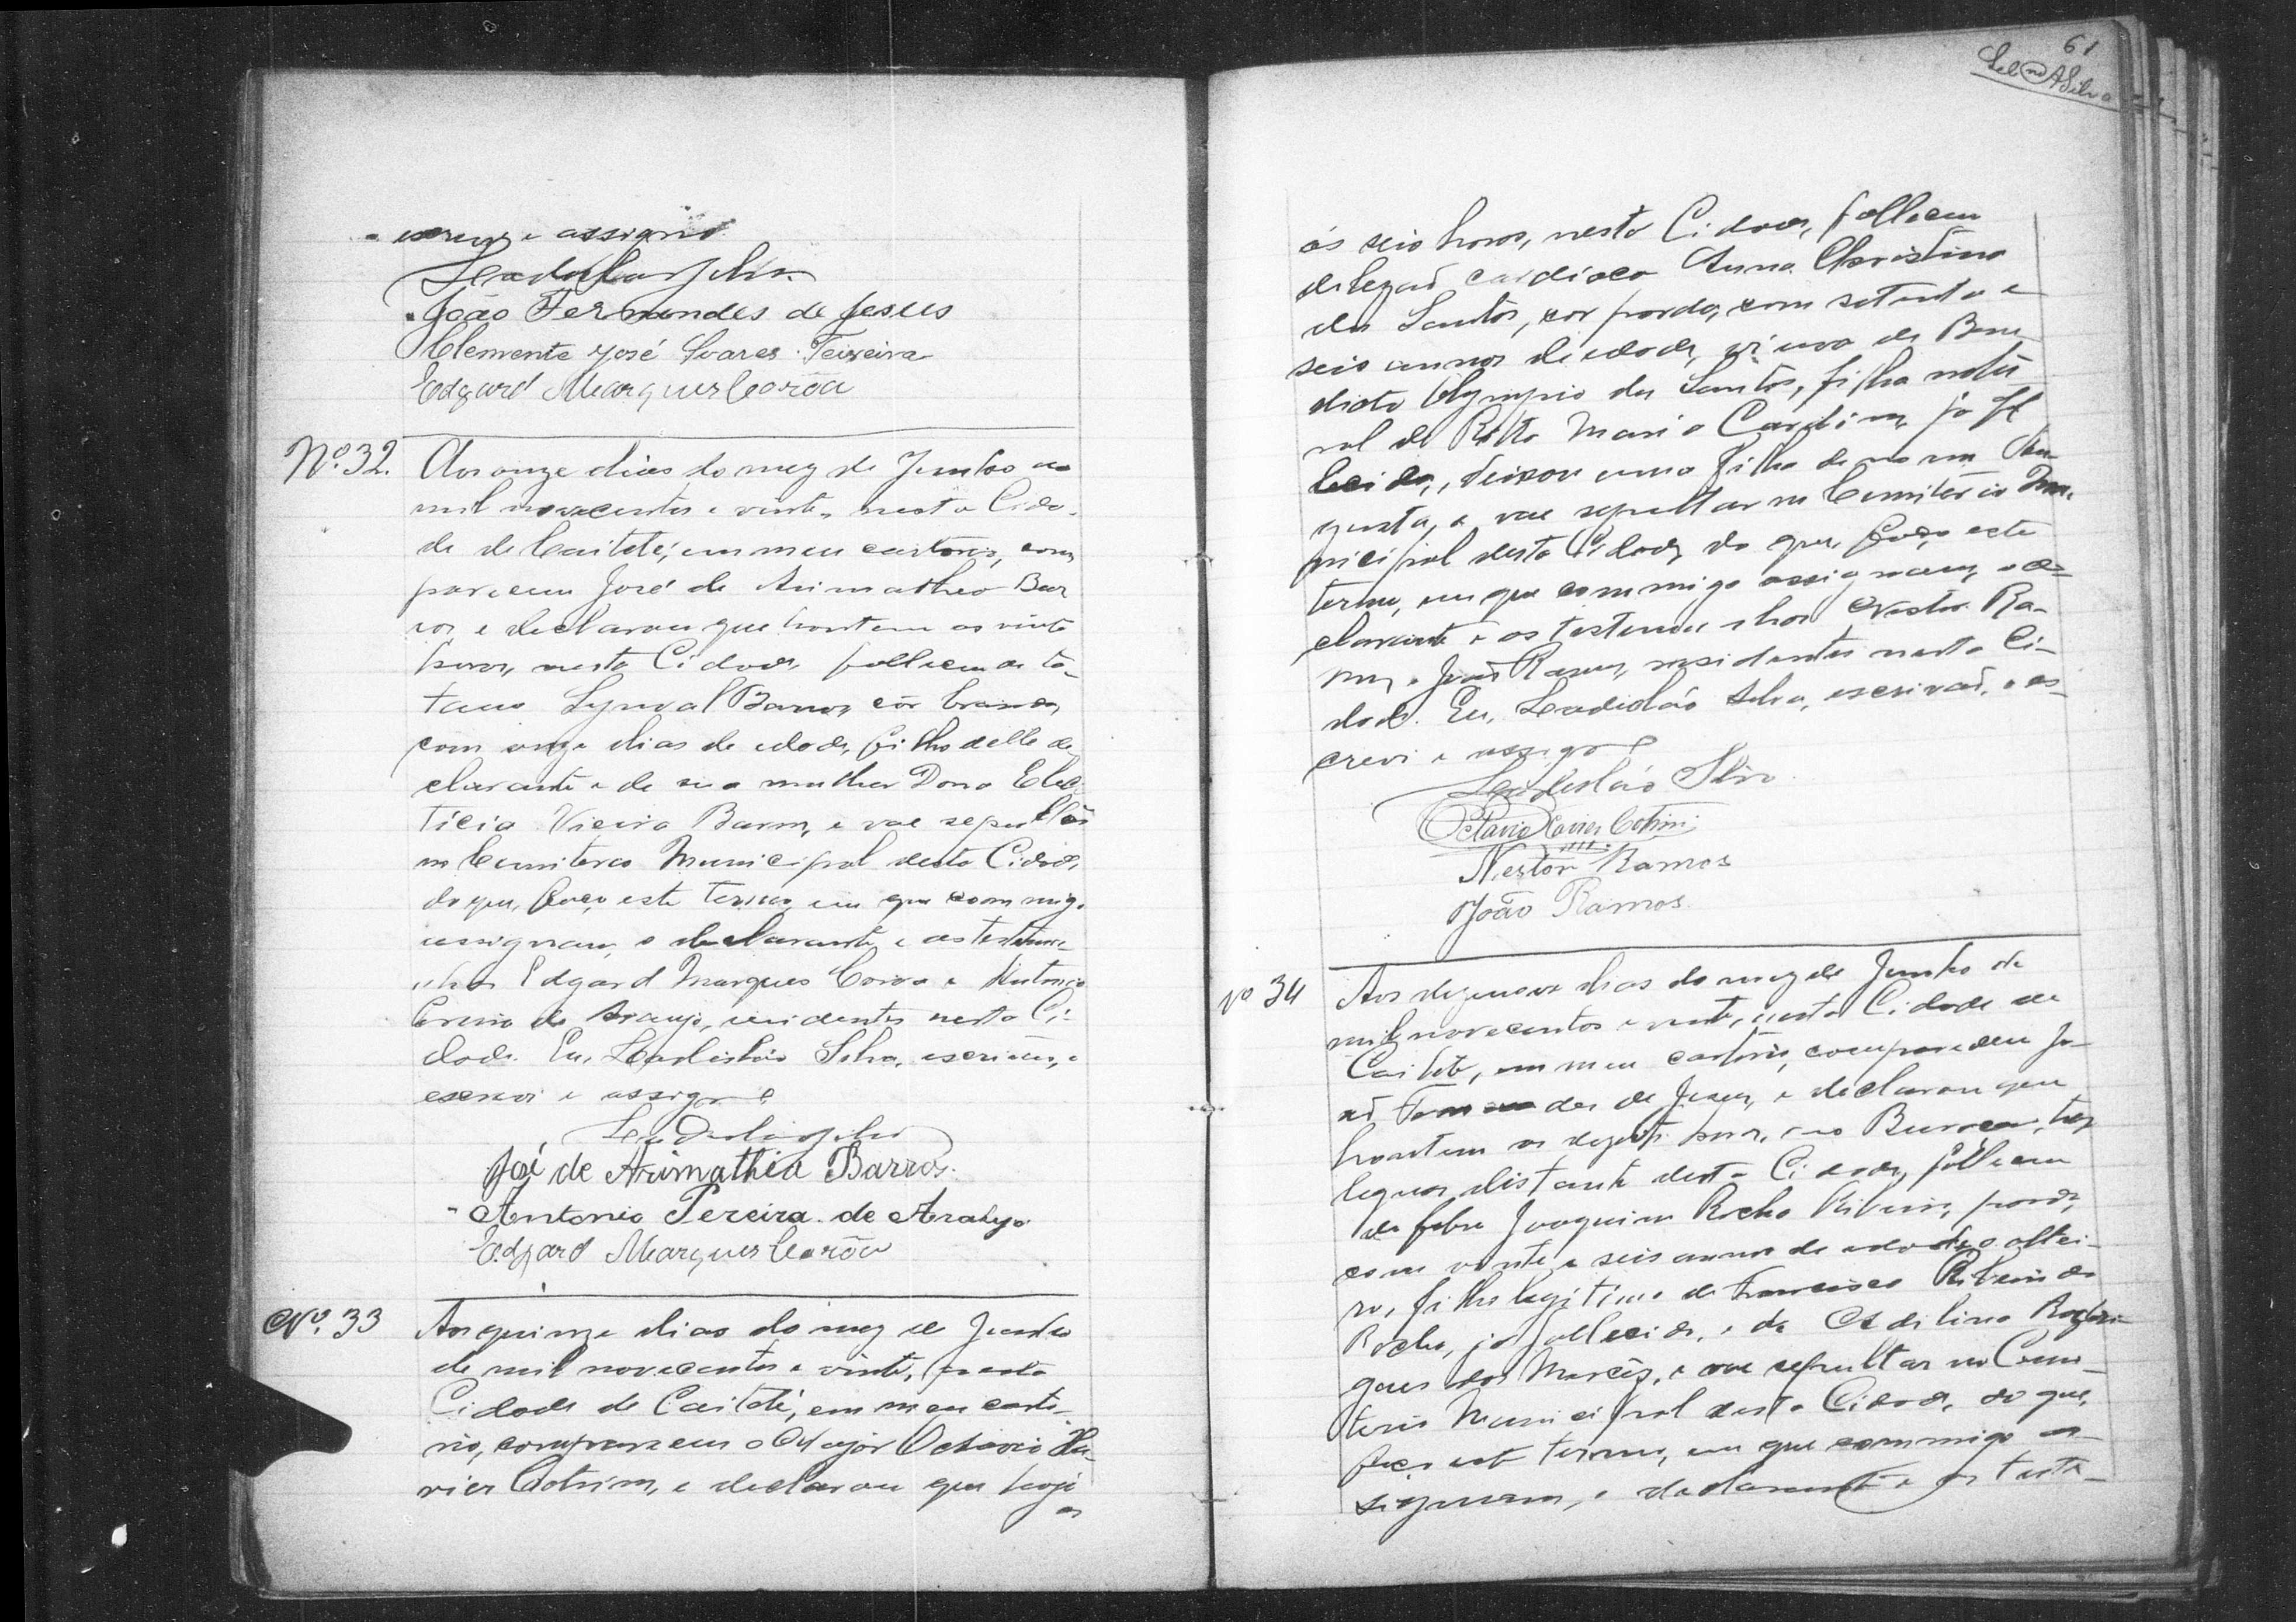 escrevi e assigno.
Leudislao Silva
João Fernandes de Jesus
Clemente José Soares Teixeira
Edgard Marques Corôa
Nº 32. Aos onze dias do mez de Junho de
mil novecentos e vinte, nesta Cida-
de de Caiteté, em meu cartorio, com
pareceu José de Arimathea Bar
ros, e declarou que hontem as vinte
horas, nesta Cidade, falleceu de te-
tano Synval Barros, côr branca,
com onze dias de edade, filho delle de
clarante e de sua mulher Dona
Vieira Barros, e vae sepultar
no Cemiterio Municipal desta Cidade,
do que, faço este termo, em que commigo
assignam, o declarante e as testemu-
nhas Edgard Marques Corôa e Antonio
Pereira de Araujo, residentes nesta Ci-
dade. Eu, Leudislao Silva, escrivão, o
escrevi e assigno
Leudislao Silva
José de Arimathéa Barros.
Antonio Pereira de Araujo
Edgard Marques Corôa
Nº 33 Aos quinze dias do mez de Junho
de mil novecentos e vinte, nesta
Cidade de Caiteté, em meu carto-
rio, compareceu o Major Octavio Xa-
vier Cotrim, e declarou que hoje
as
61
Silva
ás seis horas, nesta Cidade, falleceu
de lezão cardiaca Anna Christina
dos Santos, cor parda, com setenta e
seis annos de edade, viuva de Bene
dicto Olympio dos Santos, filha natu
ral de Ritta Maria Carolina, já fal
lecida, deixou uma filha de nome Au
gusta, e vae sepultar no Cemiterio Mu
nicipal desta Cidade, do que, faço este
termo, em que commigo assignam, o de-
clarante e as testemunhas Nestor Ra-
mos e João Ramos, residentes nesta Ci-
dade. Eu, Leudislao Silva, escrivão, o es-
crevi e assigno
Leudislao Silva
Octavio Xavier Cotrim
Nestor Ramos
João Ramos
Nº 34 Aos dezenove dias do mez de Junho de
mil novecentos e vinte, nesta Cidade de
Caiteté, em meu cartorio, compareceu Jo-
ão Fernandes de Jesus, e declarou que
hontem as horas, no tres
leguas distante desta Cidade, falleceu
de febre Joaquim Rocha Ribeiro, pardo,
com vinte e seis annos de edade, soltei-
ro, filho legitimo de Francisco Ribeiro da
Rocha, já fallecido, e de Rodri-
gues das Mercês, e vae sepultar no Cemi-
terio Municipal desta Cidade, do que,
faço este termo, em que commigo as-
signaram, o declarante e as teste-